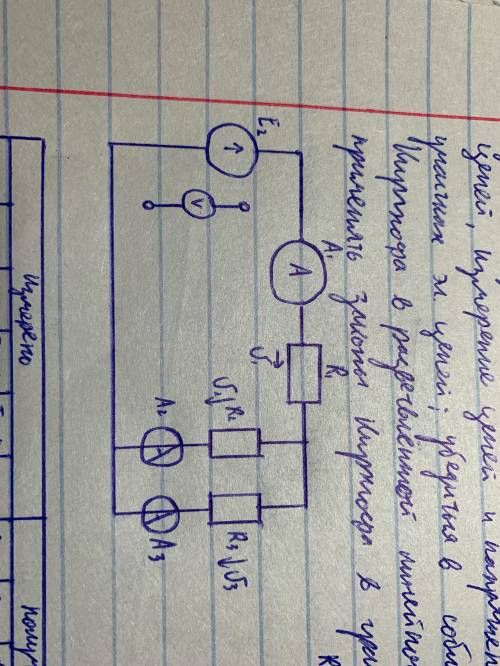 цепей, измерение цепей и напряжен
участках эл цепей; убедится в собл
Кирхгофа в разветвлённой линейно
применять законы Кирхгофа в
R
E₂
V
A₁
A
R₁
U₁
R₂
U₂
A₂
A
R₃
U₃
A₃
A
Измерено